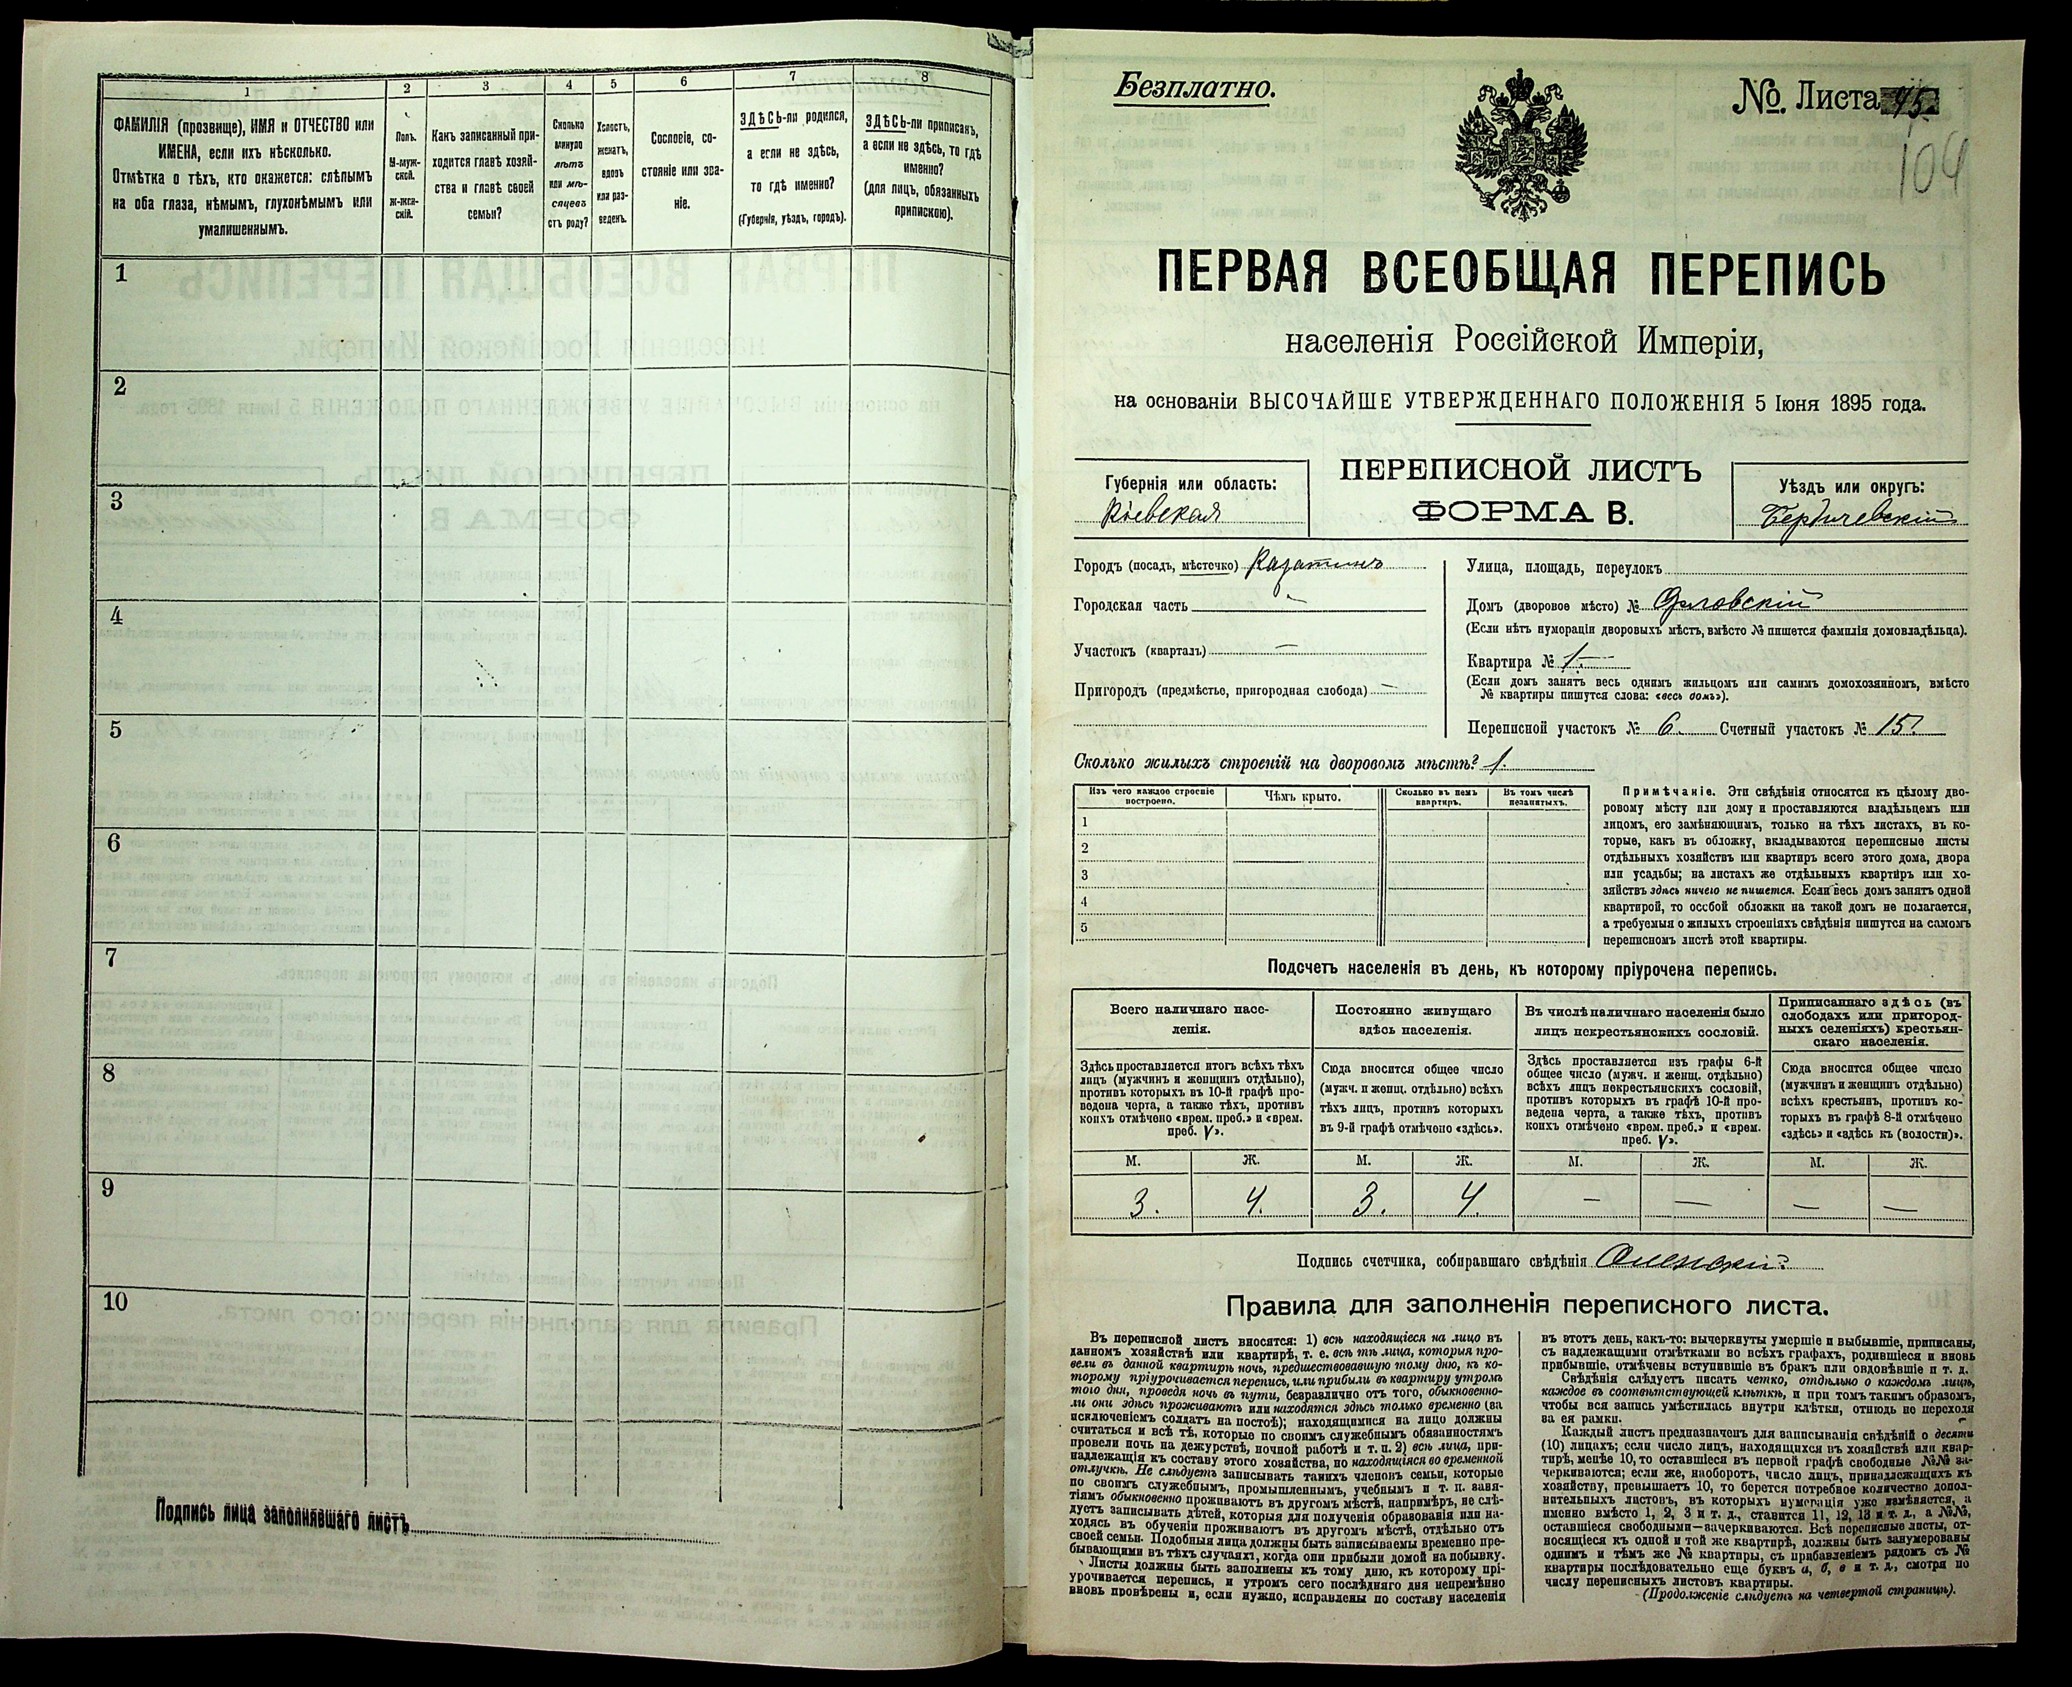 1
2
3
4
5
6
7
8
ФАМИЛІЯ (прозвище), ИМЯ и ОТЧЕСТВО или
ИМЕНА, если ихъ нѣсколько.
Отмѣтка о тѣхъ, кто окажется: слѣпымъ
на оба глаза, нѣмымъ, глухонѣмымъ или
умалишеннымъ.
Полъ.
М-муж-
ской.
Ж-жен-
скій.
Какъ записанный при-
ходится главѣ хозяй-
ства и главѣ своей
семьи?
Сколько
минуло
лѣтъ
или мѣ-
сяцевъ
отъ роду?
Холостъ,
женатъ,
вдовъ
или раз-
веденъ.
Сословіе, со-
стояніе или зва-
ніе.
ЗДѢСЬ-ли родился,
а если не здѣсь,
то гдѣ именно?
(Губернія, уѣздъ, городъ).
ЗДѢСЬ-ли приписанъ,
а если не здѣсь, то гдѣ
именно?
(для лицъ, обязанныхъ
припискою).
1
2
3
4
5
6
7
8
9
10
Подпись лица заполнявшаго листъ
Безплатно.
№. Листа 95.
104
ПЕРВАЯ ВСЕОБЩАЯ ПЕРЕПИСЬ
населенія Россійской Имперіи,
на основаніи ВЫСОЧАЙШЕ УТВЕРЖДЕННАГО ПОЛОЖЕНІЯ 5 Іюня 1895 года.
ПЕРЕПИСНОЙ ЛИСТЪ
ФОРМА В.
Губернія или область:
Кіевская
Уѣздъ или округъ:
Бердичевскій
Городъ (посадъ, мѣстечко) Казатинъ
Городская часть —
Участокъ (кварталъ) —
Пригородъ (предмѣстье, пригородная слобода) —
Улица, площадь, переулокъ
Домъ (дворовое мѣсто) № Орловскій
(Если нѣтъ нумораціи дворовыхъ мѣстъ, вмѣсто № пишется фамилія домовладѣльца).
Квартира № 1.
(Если домъ занятъ весь однимъ жильцомъ или самимъ домохозяиномъ, вмѣсто
№ квартиры пишутся слова: «весь домъ»).
Переписной участокъ № 6. Счетный участокъ № 15.
Сколько жилыхъ строеній на дворовомъ мѣстѣ? 1.
Изъ чего каждое строеніе
построено.
Чѣмъ крыто.
Сколько въ немъ
квартиръ.
Въ томъ числѣ
незанятыхъ.
1
2
3
4
5
Примѣчаніе. Эти свѣдѣнія относятся къ цѣлому дво-
ровому мѣсту или дому и проставляются владѣльцемъ или
лицомъ, его замѣняющимъ, только на тѣхъ листахъ, въ ко-
торые, какъ въ обложку, вкладываются переписные листы
отдѣльныхъ хозяйствъ или квартиръ всего этого дома, двора
или усадьбы; на листахъ же отдѣльныхъ квартиръ или хо-
зяйствъ здѣсь ничего не пишется. Если весь домъ занятъ одной
квартирой, то особой обложки на такой домъ не полагается,
а требуемыя о жилыхъ строеніяхъ свѣдѣнія пишутся на самомъ
переписномъ листѣ этой квартиры.
Подсчетъ населенія въ день, къ которому пріурочена перепись.
Всего наличнаго насе-
ленія.
Постоянно живущаго
здѣсь населенія.
Въ числѣ наличнаго населенія было
лицъ некрестьянскихъ сословій.
Приписаннаго здѣсь (въ
слободахъ или пригород-
ныхъ селеніяхъ) крестьян-
скаго населенія.
Здѣсь проставляется итогъ всѣхъ тѣхъ
лицъ (мужчинъ и женщинъ отдѣльно),
противъ которыхъ въ 10-й графѣ про-
ведена черта, а также тѣхъ, противъ
коихъ отмѣчено «врем. преб.» и «врем.
преб. V».
Сюда вносится общее число
(мужч. и женщ. отдѣльно) всѣхъ
тѣхъ лицъ, противъ которыхъ
въ 9-й графѣ отмѣчено «здѣсь».
Здѣсь проставляется изъ графы 6-й
общее число (мужч. и женщ. отдѣльно)
всѣхъ лицъ некрестьянскихъ сословій,
противъ которыхъ въ графѣ 10-й про-
ведена черта, а также тѣхъ, противъ
коихъ отмѣчено «врем. преб.» и «врем.
преб. V».
Сюда вносится общее число
(мужчинъ и женщинъ отдѣльно)
всѣхъ крестьянъ, противъ ко-
торыхъ въ графѣ 8-й отмѣчено
«здѣсь» и «здѣсь къ (волости)».
М. Ж. М. Ж. М. Ж. М. Ж.
3. 4. 3. 4. — — — —
Подпись счетчика, собиравшаго свѣдѣнія
Правила для заполненія переписного листа.
Въ переписной листъ вносятся: 1) всѣ находящіеся на лицо въ
данномъ хозяйствѣ или квартирѣ, т. е. всѣ тѣ лица, которыя про-
вели въ данной квартирѣ ночь, предшествовавшую тому дню, къ ко-
торому пріурочивается перепись, или прибыли въ квартиру утромъ
того дня, проведя ночь въ пути, безразлично отъ того, обыкновенно-
ли они здѣсь проживаютъ или находятся здѣсь только временно (за
исключеніемъ солдатъ на постоѣ); находящимися на лицо должны
считаться и всѣ тѣ, которые по своимъ служебнымъ обязанностямъ
провели ночь на дежурствѣ, ночной работѣ и т. п. 2) всѣ лица, при-
надлежащія къ составу этого хозяйства, но находящіяся во временной
отлучкѣ. Не слѣдуетъ записывать такихъ членовъ семьи, которые
по своимъ служебнымъ, промышленнымъ, учебнымъ и т. п. заня-
тіямъ обыкновенно проживаютъ въ другомъ мѣстѣ, напримѣръ, не слѣ-
дуетъ записывать дѣтей, которыя для полученія образованія или на-
ходясь въ обученіи проживаютъ въ другомъ мѣстѣ, отдѣльно отъ
своей семьи. Подобныя лица должны быть записываемы временно пре-
бывающими въ тѣхъ случаяхъ, когда они прибыли домой на побывку.
Листы должны быть заполнены къ тому дню, къ которому прі-
урочивается перепись, и утромъ сего послѣдняго дня непремѣнно
вновь провѣрены и, если нужно, исправлены по составу населенія
въ этотъ день, какъ-то: вычеркнуты умершіе и выбывшіе, приписаны,
съ надлежащими отмѣтками во всѣхъ графахъ, родившіеся и вновь
прибывшіе, отмѣчены вступившіе въ бракъ или овдовѣвшіе и т. д.
Свѣдѣнія слѣдуетъ писать четко, отдѣльно о каждомъ лицѣ,
каждое въ соотвѣтствующей клѣткѣ, и при томъ такимъ образомъ,
чтобы вся запись умѣстилась внутри клѣтки, отнюдь не переходя
за ея рамки.
Каждый листъ предназначенъ для записыванія свѣдѣній о десяти
(10) лицахъ; если число лицъ, находящихся въ хозяйствѣ или квар-
тирѣ, менѣе 10, то оставшіеся въ первой графѣ свободные №№ за-
черкиваются; если же, наоборотъ, число лицъ, принадлежащихъ къ
хозяйству, превышаетъ 10, то берется потребное количество допол-
нительныхъ листовъ, въ которыхъ нумерація уже измѣняется, а
именно вмѣсто 1, 2, 3 и т. д., ставится 11, 12, 13 и т. д., а №№,
оставшіеся свободными—зачеркиваются. Всѣ переписные листы, от-
носящіеся къ одной и той же квартирѣ, должны быть занумерованы
однимъ и тѣмъ же № квартиры, съ прибавленіемъ рядомъ съ №
квартиры послѣдовательно еще буквъ а, б, в и т. д., смотря по
числу переписныхъ листовъ квартиры.
(Продолженіе слѣдуетъ на четвертой страницѣ).